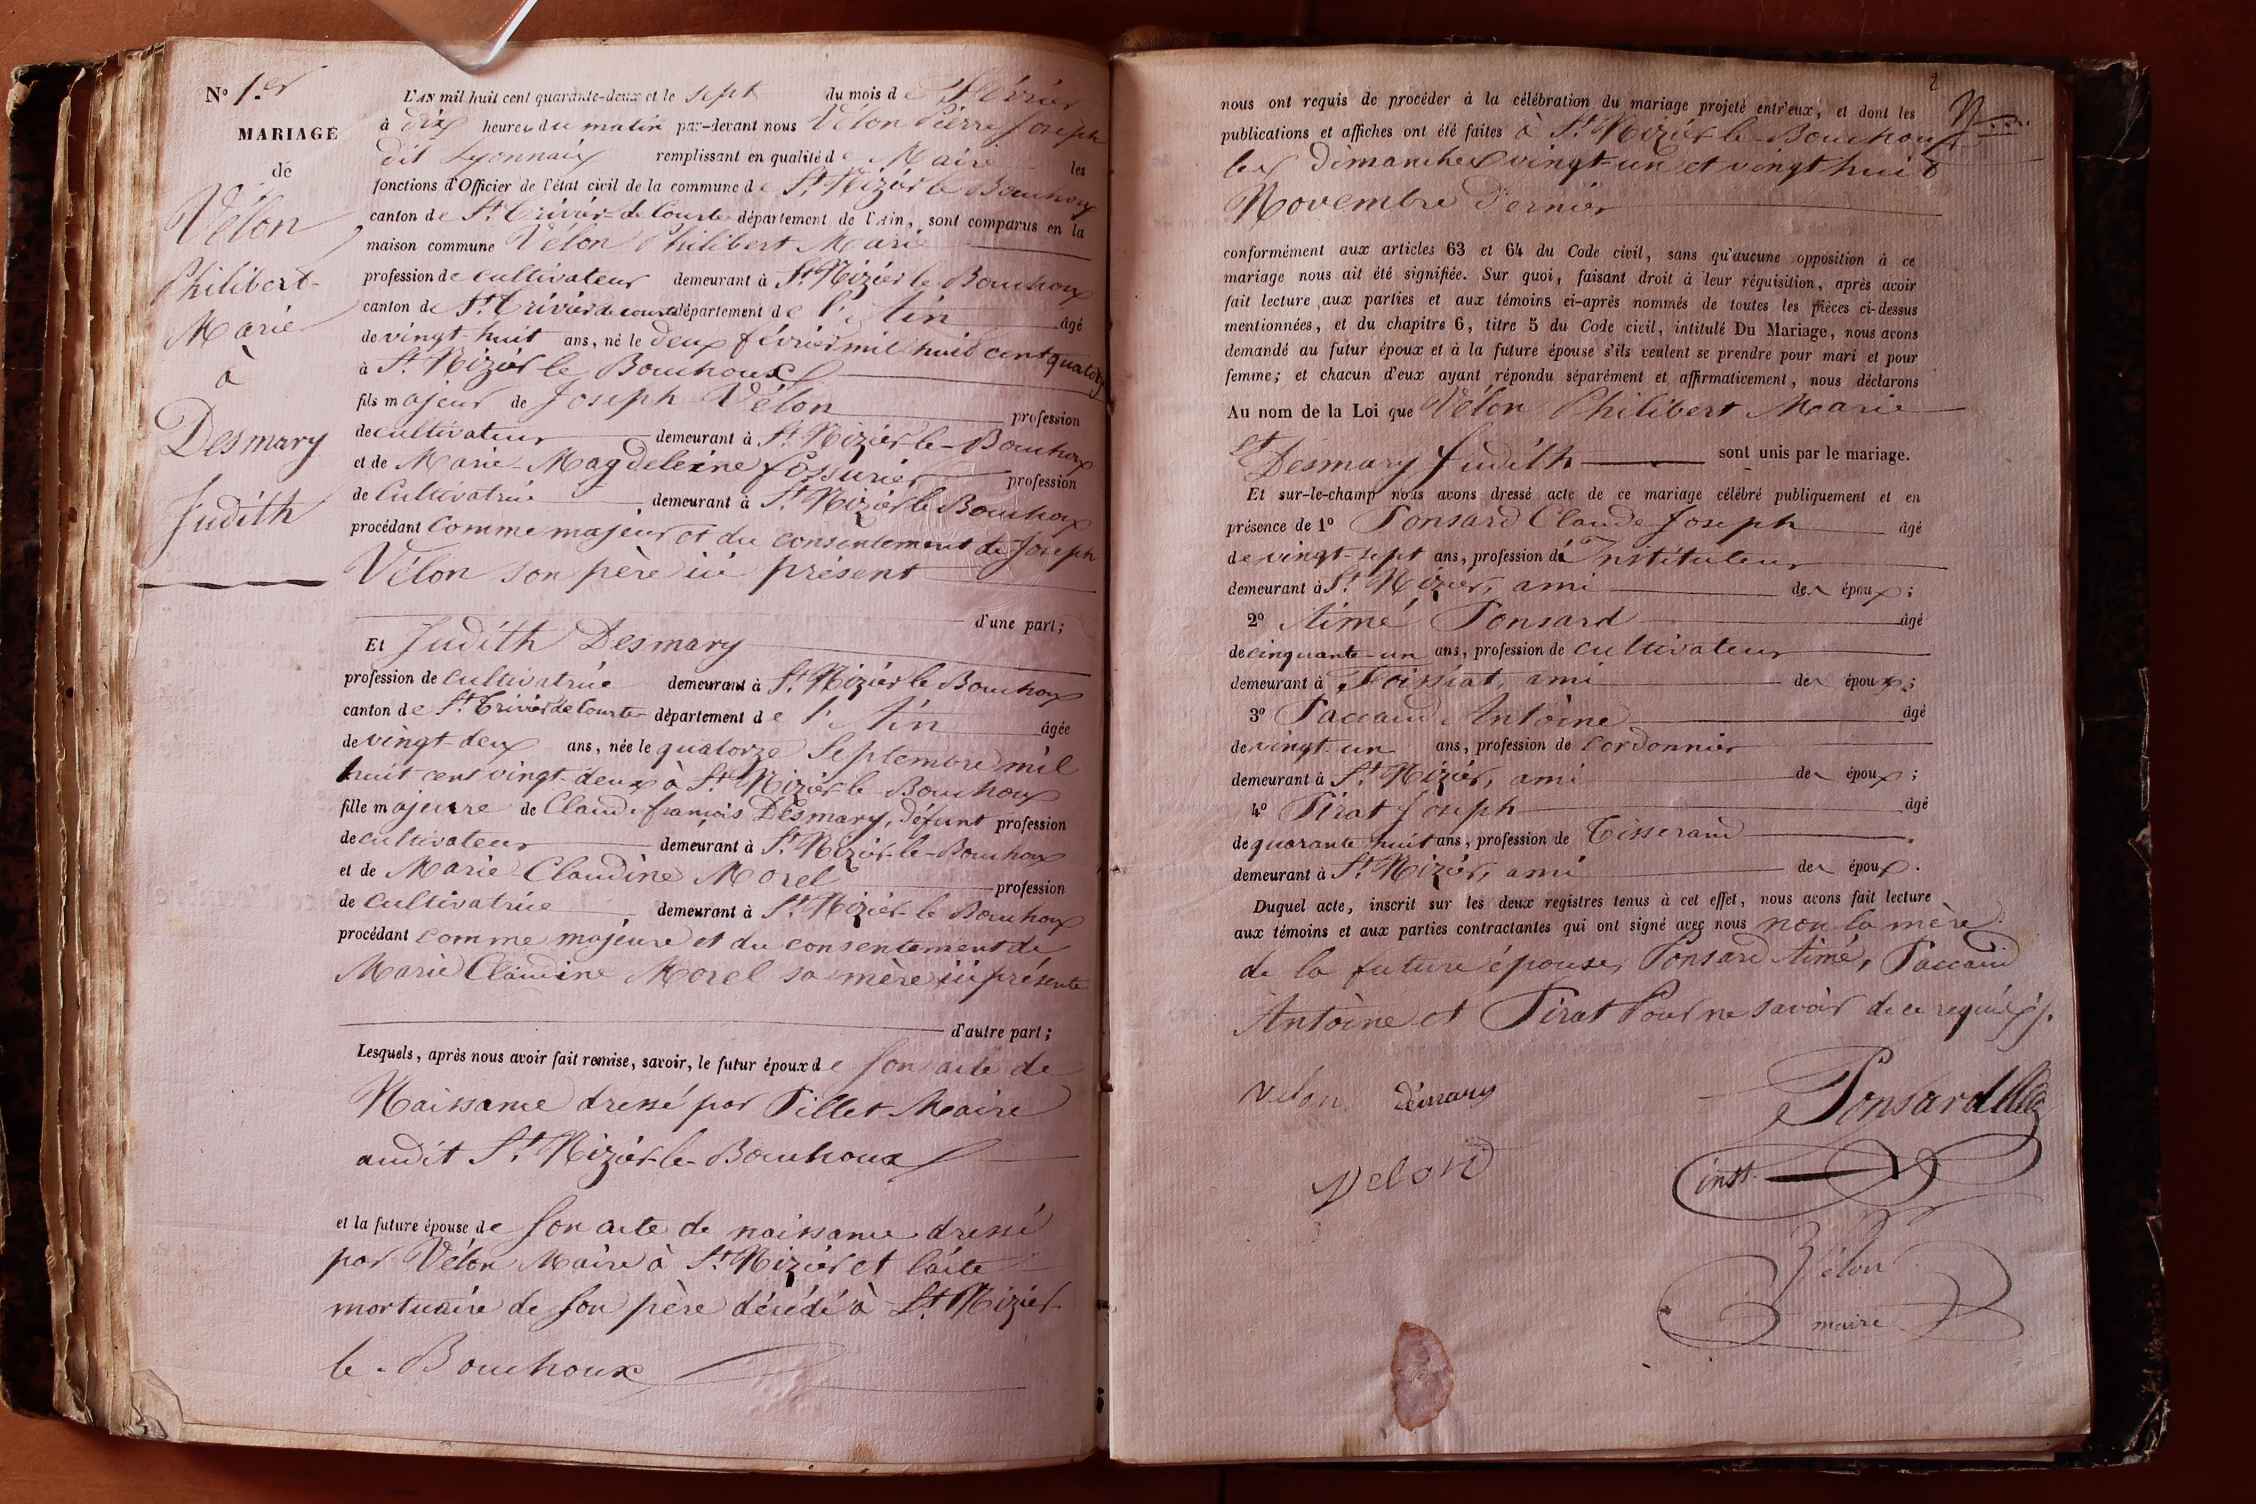 N° 1.er
MARIAGE
de
Vélon
Philibert-
Marie
à
Desmary
Judith
L'AN mil huit cent quarante-deux et le sept du mois de Février
à dix heures du matin par-devant nous Vélon Pierre Joseph
dit Lyonnais remplissant en qualité de Maire les
fonctions d'Officier de l'état civil de la commune de St. Nizier le Bouchoux
canton de St. Trivier-de Courtes département de l'Ain, sont comparus en la
maison commune Vélon Philibert Marie
profession de cultivateur demeurant à St. Nizier le Bouchoux
canton de St. Trivier de courtes département de l'Ain âgé
de vingt-huit ans, né le deux février mil huit cent quatorze
à St. Nizier le Bouchoux
fils majeur de Joseph Vélon profession
de cultivateur demeurant à St. Nizier-le-Bouchoux
et de Marie-Magdeleine profession
de Cultivatrice demeurant à St. Nizier le Bouchoux
procédant comme majeur et du consentement de Joseph
Vélon son père ici présent
d'une part;
Et Judith Desmary
profession de cultivatrice demeurant à St. Nizier le Bouchoux
canton de St. Trivier de Courtes département de l'Ain âgée
de vingt-deux ans, née le quatorze Septembre mil
huit cent vingt-deux à St. Nizier le Bouchoux
fille majeure de Claude françois Desmary, défunt profession
de cultivateur demeurant à St. Nizier-le-Bouchoux
et de Marie Claudine Morel profession
de cultivatrice demeurant à St. Nizier-le Bouchoux
procédant comme majeure et du consentement de
Marie Claudine Morel sa mère ici présente
d'autre part;
Lesquels, après nous avoir fait remise, savoir, le futur époux de son acte de
Naissance dressé par Pillet Maire
audit St. Nizier-le-Bouchoux
et la future épouse de son acte de naissance dressé
par Vélon Maire à St. Nizier et l'acte
mortuaire de son père décédé à St. Nizier-
le-Bouchoux
2
nous ont requis de procéder à la célébration du mariage projeté entr'eux, et dont les
publications et affiches ont été faites à St. Nizier-le-Bouchoux
les dimanches vingt-un et vingt huit
Novembre dernier
conformément aux articles 63 et 64 du Code civil, sans qu'aucune opposition à ce
mariage nous ait été signifiée. Sur quoi, faisant droit à leur réquisition, après avoir
fait lecture aux parties et aux témoins ci-après nommés de toutes les pièces ci-dessus
mentionnées, et du chapitre 6, titre 5 du Code civil, intitulé Du Mariage, nous avons
demandé au futur époux et à la future épouse s'ils veulent se prendre pour mari et pour
femme; et chacun d'eux ayant répondu séparément et affirmativement, nous déclarons
Au nom de la Loi que Vélon Philibert Marie
et Desmary Judith sont unis par le mariage.
Et sur-le-champ nous avons dressé acte de ce mariage célébré publiquement et en
présence de 1° Ponsard Claude Joseph âgé
de vingt-sept ans, profession d'Instituteur
demeurant à St. Nizier, ami des époux;
2° Aimé Ponsard âgé
de cinquante-un ans, profession de cultivateur
demeurant à Foissiat, ami des époux;
3° Paccaud Antoine âgé
de vingt-un ans, profession de cordonnier
demeurant à St. Nizier, ami des époux;
4° Pirat Joseph âgé
de quarante huit ans, profession de Tisserand
demeurant à St. Nizier, ami des époux.
Duquel acte, inscrit sur les deux registres tenus à cet effet, nous avons fait lecture
aux témoins et aux parties contractantes qui ont signé avec nous non la mère
de la future épouse, Ponsard Aimé, Paccaud
Antoine et Pirat Pour ne savoir de ce requis
velon Démary Ponsard
Velon inst.
Vélon
maire